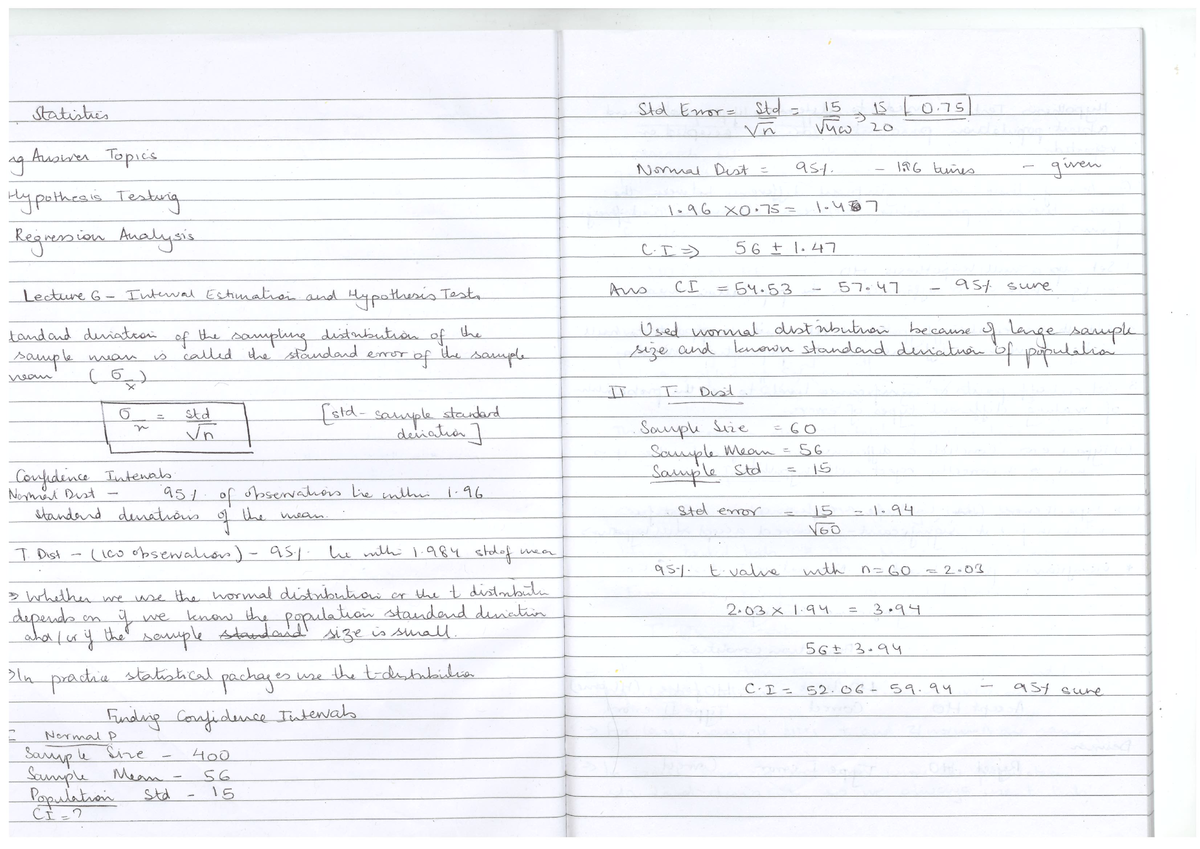 Statistics
ng Answer Topics
Hypothesis Testing
Regression Analysis
Lecture 6 - Interval Estimation and Hypothesis Tests
tandard deviation of the sampling distribution of the
sample mean is called the standard error of the sample
mean (σ x̄)
σ x̄ = std / √n [std - sample standard
deviation]
Confidence Intervals
Normal Dist - 95% of observations lie within 1.96
standard deviations of the mean.
T Dist - (100 observations) - 95% lie within 1.984 std of mean
⇒ Whether we use the normal distribution or the t distributn
depends on if we know the population standard deviation
and/or if the sample standard size is small.
⇒ In practice statistical packages use the t-distribution
Finding Confidence Intervals
I Normal D
Sample Size - 400
Sample Mean - 56
Population Std - 15
CI = ?
Std Error = Std / √n = 15 / √400 ⇒ 15 / 20 0.75
Normal Dist = 95% - 1.96 times - given
1.96 × 0.75 = 1.47
C.I ⇒ 56 ± 1.47
Ans CI = 54.53 - 57.47 - 95% sure
Used normal distribution because of large sample
size and known standard deviation of population
II T- Dist
Sample Size = 60
Sample Mean = 56
Sample Std = 15
Std error = 15 / √60 = 1.94
95% t-value with n=60 = 2.03
2.03 × 1.94 = 3.94
56 ± 3.94
C.I = 52.06 - 59.94 - 95% sure